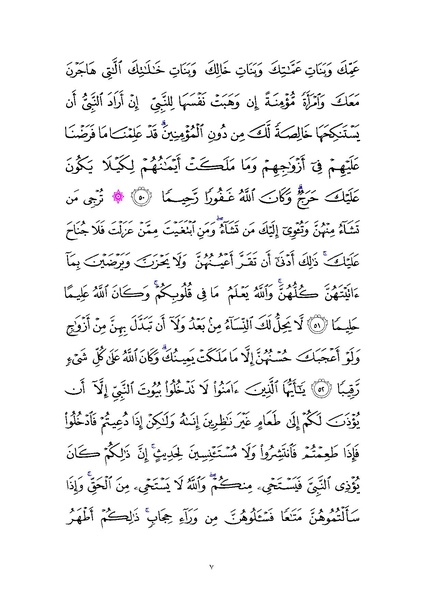 عَمِّكَ وَبَنَاتِ عَمَّٰتِكَ وَبَنَاتِ خَالِكَ وَبَنَاتِ خَٰلَٰتِكَ ٱلَّٰتِى هَاجَرْنَ
مَعَكَ وَٱمْرَأَةً مُّؤْمِنَةً إِن وَهَبَتْ نَفْسَهَا لِلنَّبِىِّ إِنْ أَرَادَ ٱلنَّبِىُّ أَن
يَسْتَنكِحَهَا خَالِصَةً لَّكَ مِن دُونِ ٱلْمُؤْمِنِينَ ۗ قَدْ عَلِمْنَا مَا فَرَضْنَا
عَلَيْهِمْ فِىٓ أَزْوَٰجِهِمْ وَمَا مَلَكَتْ أَيْمَٰنُهُمْ لِكَيْلَا يَكُونَ
عَلَيْكَ حَرَجٌ ۗ وَكَانَ ٱللَّهُ غَفُورًا رَّحِيمًا ۝٥٠ ۞ تُرْجِى مَن
تَشَآءُ مِنْهُنَّ وَتُـْٔوِىٓ إِلَيْكَ مَن تَشَآءُ ۖ وَمَنِ ٱبْتَغَيْتَ مِمَّنْ عَزَلْتَ فَلَا جُنَاحَ
عَلَيْكَ ۚ ذَٰلِكَ أَدْنَىٰٓ أَن تَقَرَّ أَعْيُنُهُنَّ وَلَا يَحْزَنَّ وَيَرْضَيْنَ بِمَآ
ءَاتَيْتَهُنَّ كُلُّهُنَّ ۚ وَٱللَّهُ يَعْلَمُ مَا فِى قُلُوبِكُمْ ۚ وَكَانَ ٱللَّهُ عَلِيمًا
حَلِيمًا ۝٥١ لَّا يَحِلُّ لَكَ ٱلنِّسَآءُ مِنۢ بَعْدُ وَلَآ أَن تَبَدَّلَ بِهِنَّ مِنْ أَزْوَٰجٍ
وَلَوْ أَعْجَبَكَ حُسْنُهُنَّ إِلَّا مَا مَلَكَتْ يَمِينُكَ ۗ وَكَانَ ٱللَّهُ عَلَىٰ كُلِّ شَىْءٍ
رَّقِيبًا ۝٥٢ يَٰٓأَيُّهَا ٱلَّذِينَ ءَامَنُوا۟ لَا تَدْخُلُوا۟ بُيُوتَ ٱلنَّبِىِّ إِلَّآ أَن
يُؤْذَنَ لَكُمْ إِلَىٰ طَعَامٍ غَيْرَ نَٰظِرِينَ إِنَىٰهُ وَلَٰكِنْ إِذَا دُعِيتُمْ فَٱدْخُلُوا۟
فَإِذَا طَعِمْتُمْ فَٱنتَشِرُوا۟ وَلَا مُسْتَـْٔنِسِينَ لِحَدِيثٍ ۚ إِنَّ ذَٰلِكُمْ كَانَ
يُؤْذِى ٱلنَّبِىَّ فَيَسْتَحْىِۦ مِنكُمْ ۖ وَٱللَّهُ لَا يَسْتَحْىِۦ مِنَ ٱلْحَقِّ ۚ وَإِذَا
سَأَلْتُمُوهُنَّ مَتَٰعًا فَسْـَٔلُوهُنَّ مِن وَرَآءِ حِجَابٍ ۚ ذَٰلِكُمْ أَطْهَرُ
٧